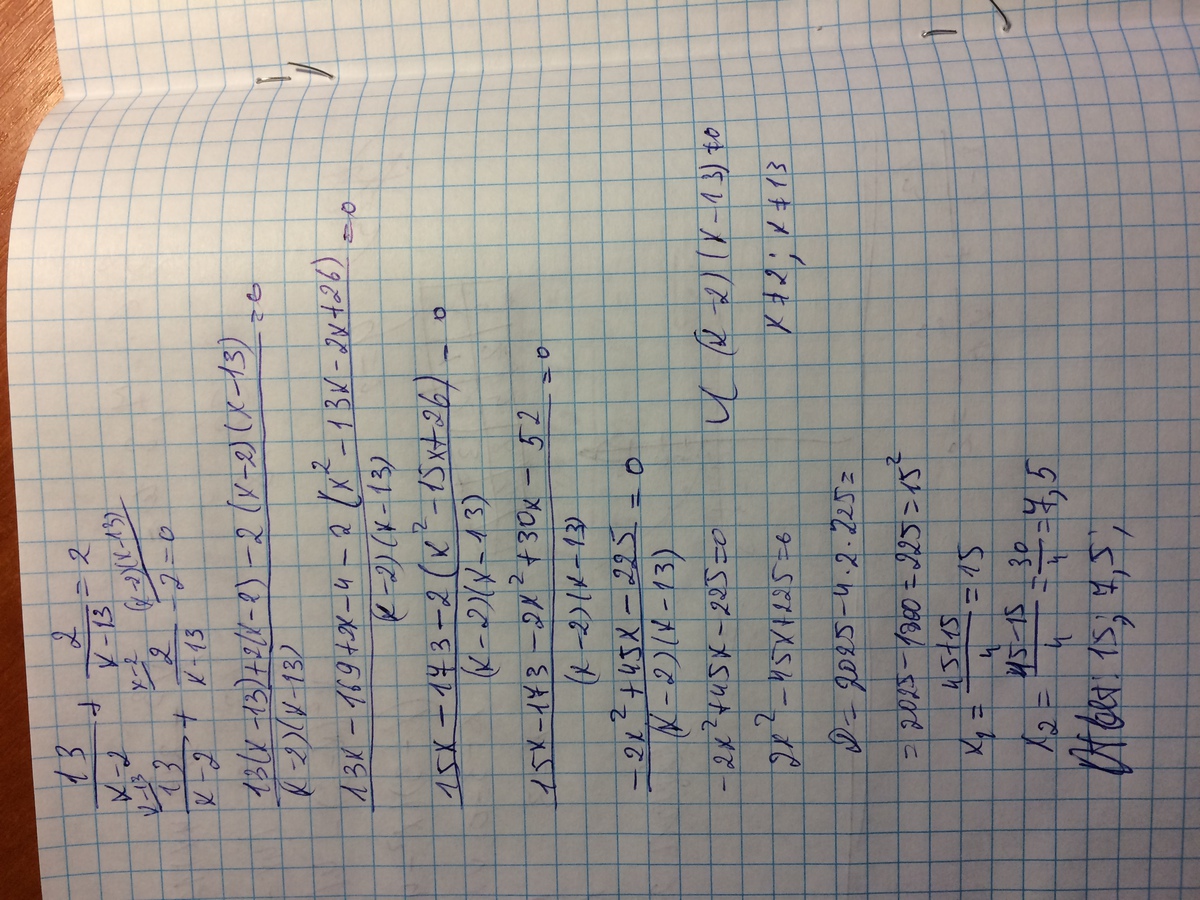 13/(x-2) + 2/(x-13) = 2
x-13 x-2 (x-2)(x-13)
13/(x-2) + 2/(x-13) - 2 = 0
(13(x-13)+2(x-2)-2(x-2)(x-13))/((x-2)(x-13)) = 0
(13x-169+2x-4-2(x²-13x-2x+26))/((x-2)(x-13)) = 0
(15x-173-2(x²-15x+26))/((x-2)(x-13)) - 0
(15x-173-2x²+30x-52)/((x-2)(x-13)) = 0
(-2x²+45x-225)/((x-2)(x-13)) = 0
-2x²+45x-225=0 и (x-2)(x-13)≠0
2x²-45x+225=0 x≠2; x≠13
D= 2025-4·2·225=
= 2025-1800=225=15²
x₁= (45+15)/4 = 15
x₂= (45-15)/4 = 30/4 = 7,5
Ответ: 15; 7,5;